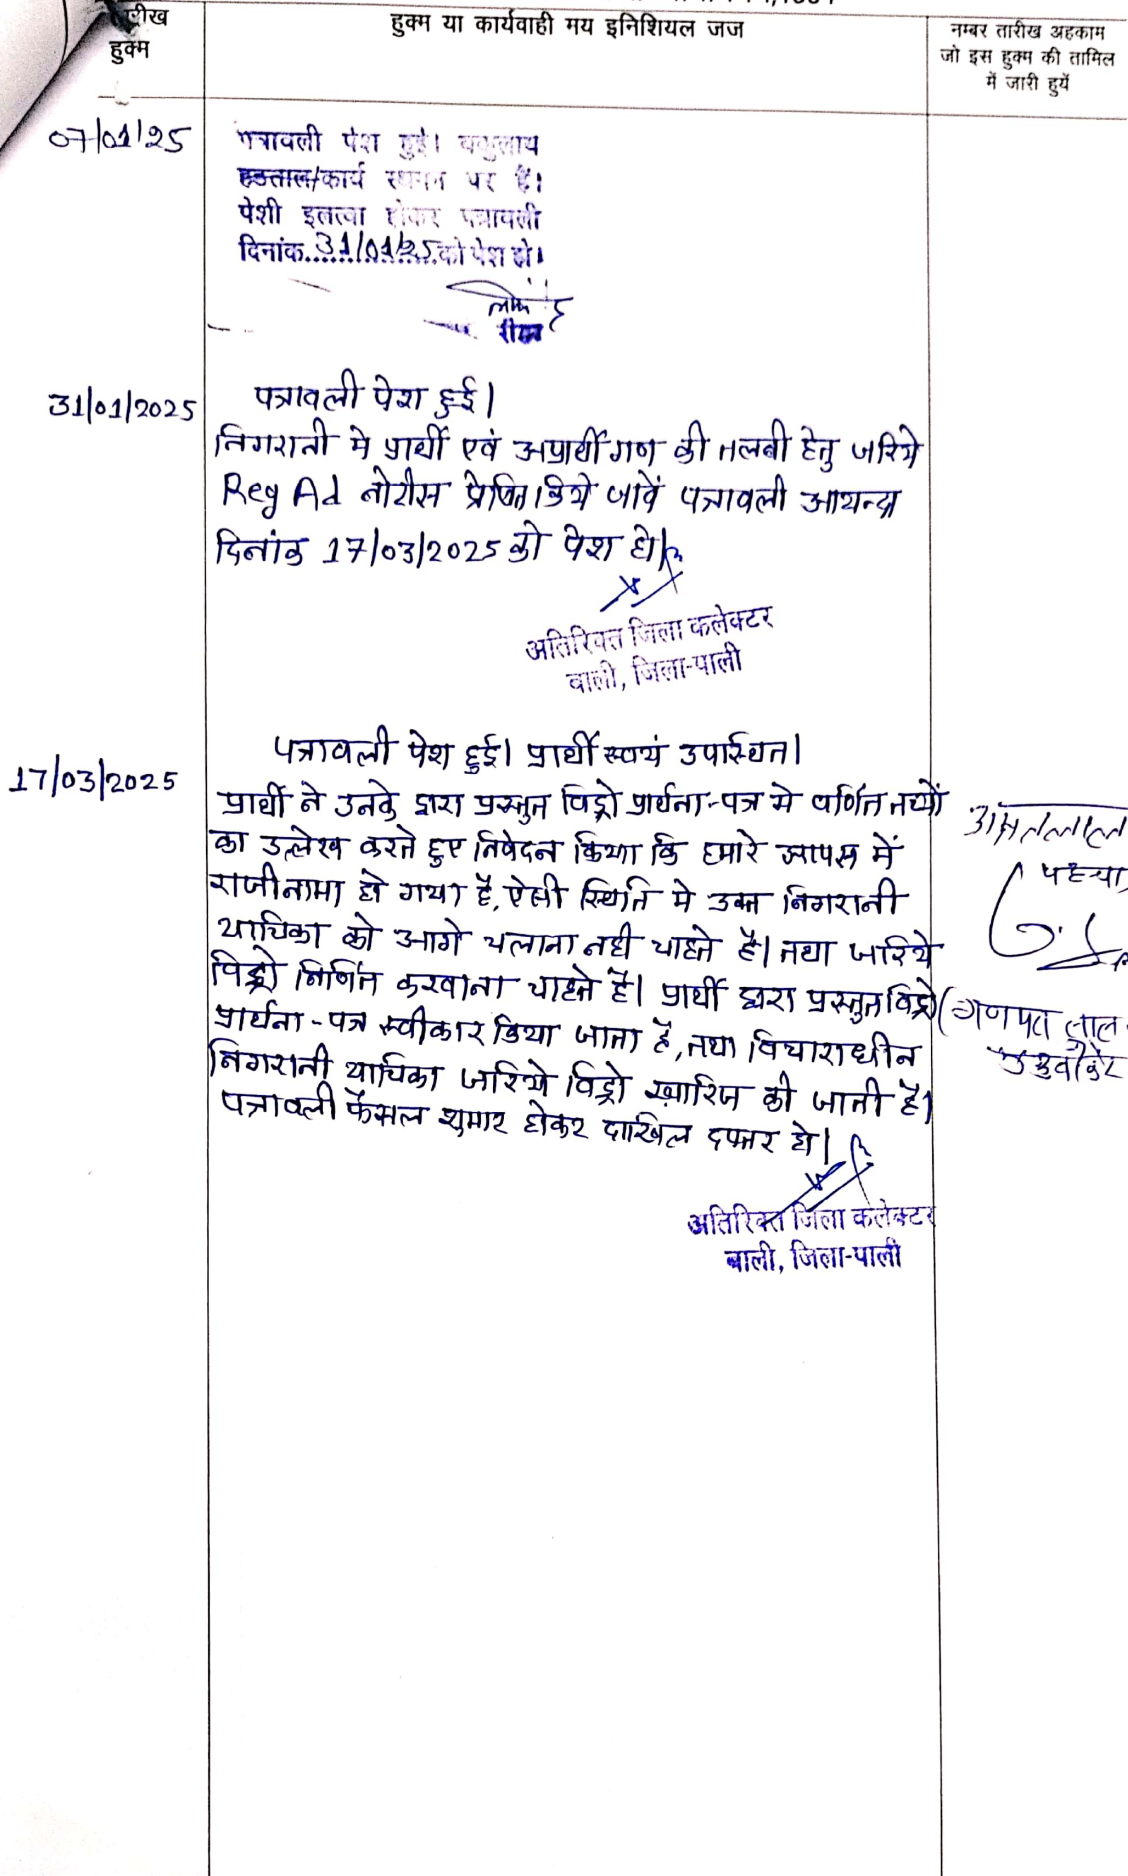 तारीख
हुक्म
हुक्म या कार्यवाही मय इनिशियल जज
नम्बर तारीख अहकाम
जो इस हुक्म की तामिल
में जारी हुयें
07/01/25
पत्रावली पेश हुई। वकुलाय
हडताल/कार्य स्थगन पर है।
पेशी इलत्वा होकर पत्रावली
दिनांक 31/01/25 को पेश हो।
रीडर
31/01/2025
पत्रावली पेश हुई।
निगरानी मे प्रार्थी एवं अप्रार्थीगण की तलबी हेतु जरिये
Reg Ad नोटीस प्रेषित किये जावें पत्रावली आयन्दा
दिनांक 17/03/2025 को पेश हो।
अतिरिक्त जिला कलेक्टर
बाली, जिला-पाली
17/03/2025
पत्रावली पेश हुई। प्रार्थी स्वयं उपस्थित।
प्रार्थी ने उनके द्वारा प्रस्तुत विड्रो प्रार्थना-पत्र मे वर्णित तथ्यों
का उल्लेख करते हुए निवेदन किया कि हमारे आपस में
राजीनामा हो गया है, ऐसी स्थिति मे उक्त निगरानी
याचिका को आगे चलाना नही चाहते है। तथा जरिये
विड्रो निर्णित करवाना चाहते है। प्रार्थी द्वारा प्रस्तुत विड्रो
प्रार्थना-पत्र स्वीकार किया जाता है, तथा विचाराधीन
निगरानी याचिका जरिये विड्रो खारिज की जाती है।
पत्रावली फैसल शुमार होकर दाखिल दफ्तर हो।
अतिरिक्त जिला कलेक्टर
बाली, जिला-पाली
पहचा
(गणपत लाल
एडवोकेट